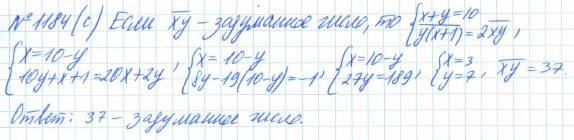 №1184(с) Если x̅y̅ – задуманное число, то { x+y=10
y̅(̅x̅+̅1̅)̅=2x̅y̅,
{ x=10-y
10y+x+1=20x+2y , { x=10-y
8y-19(10-y)=-1 , { x=10-y
27y=189 , { x=3
y=7, x̅y̅ = 37.
Ответ: 37 – задуманное число.